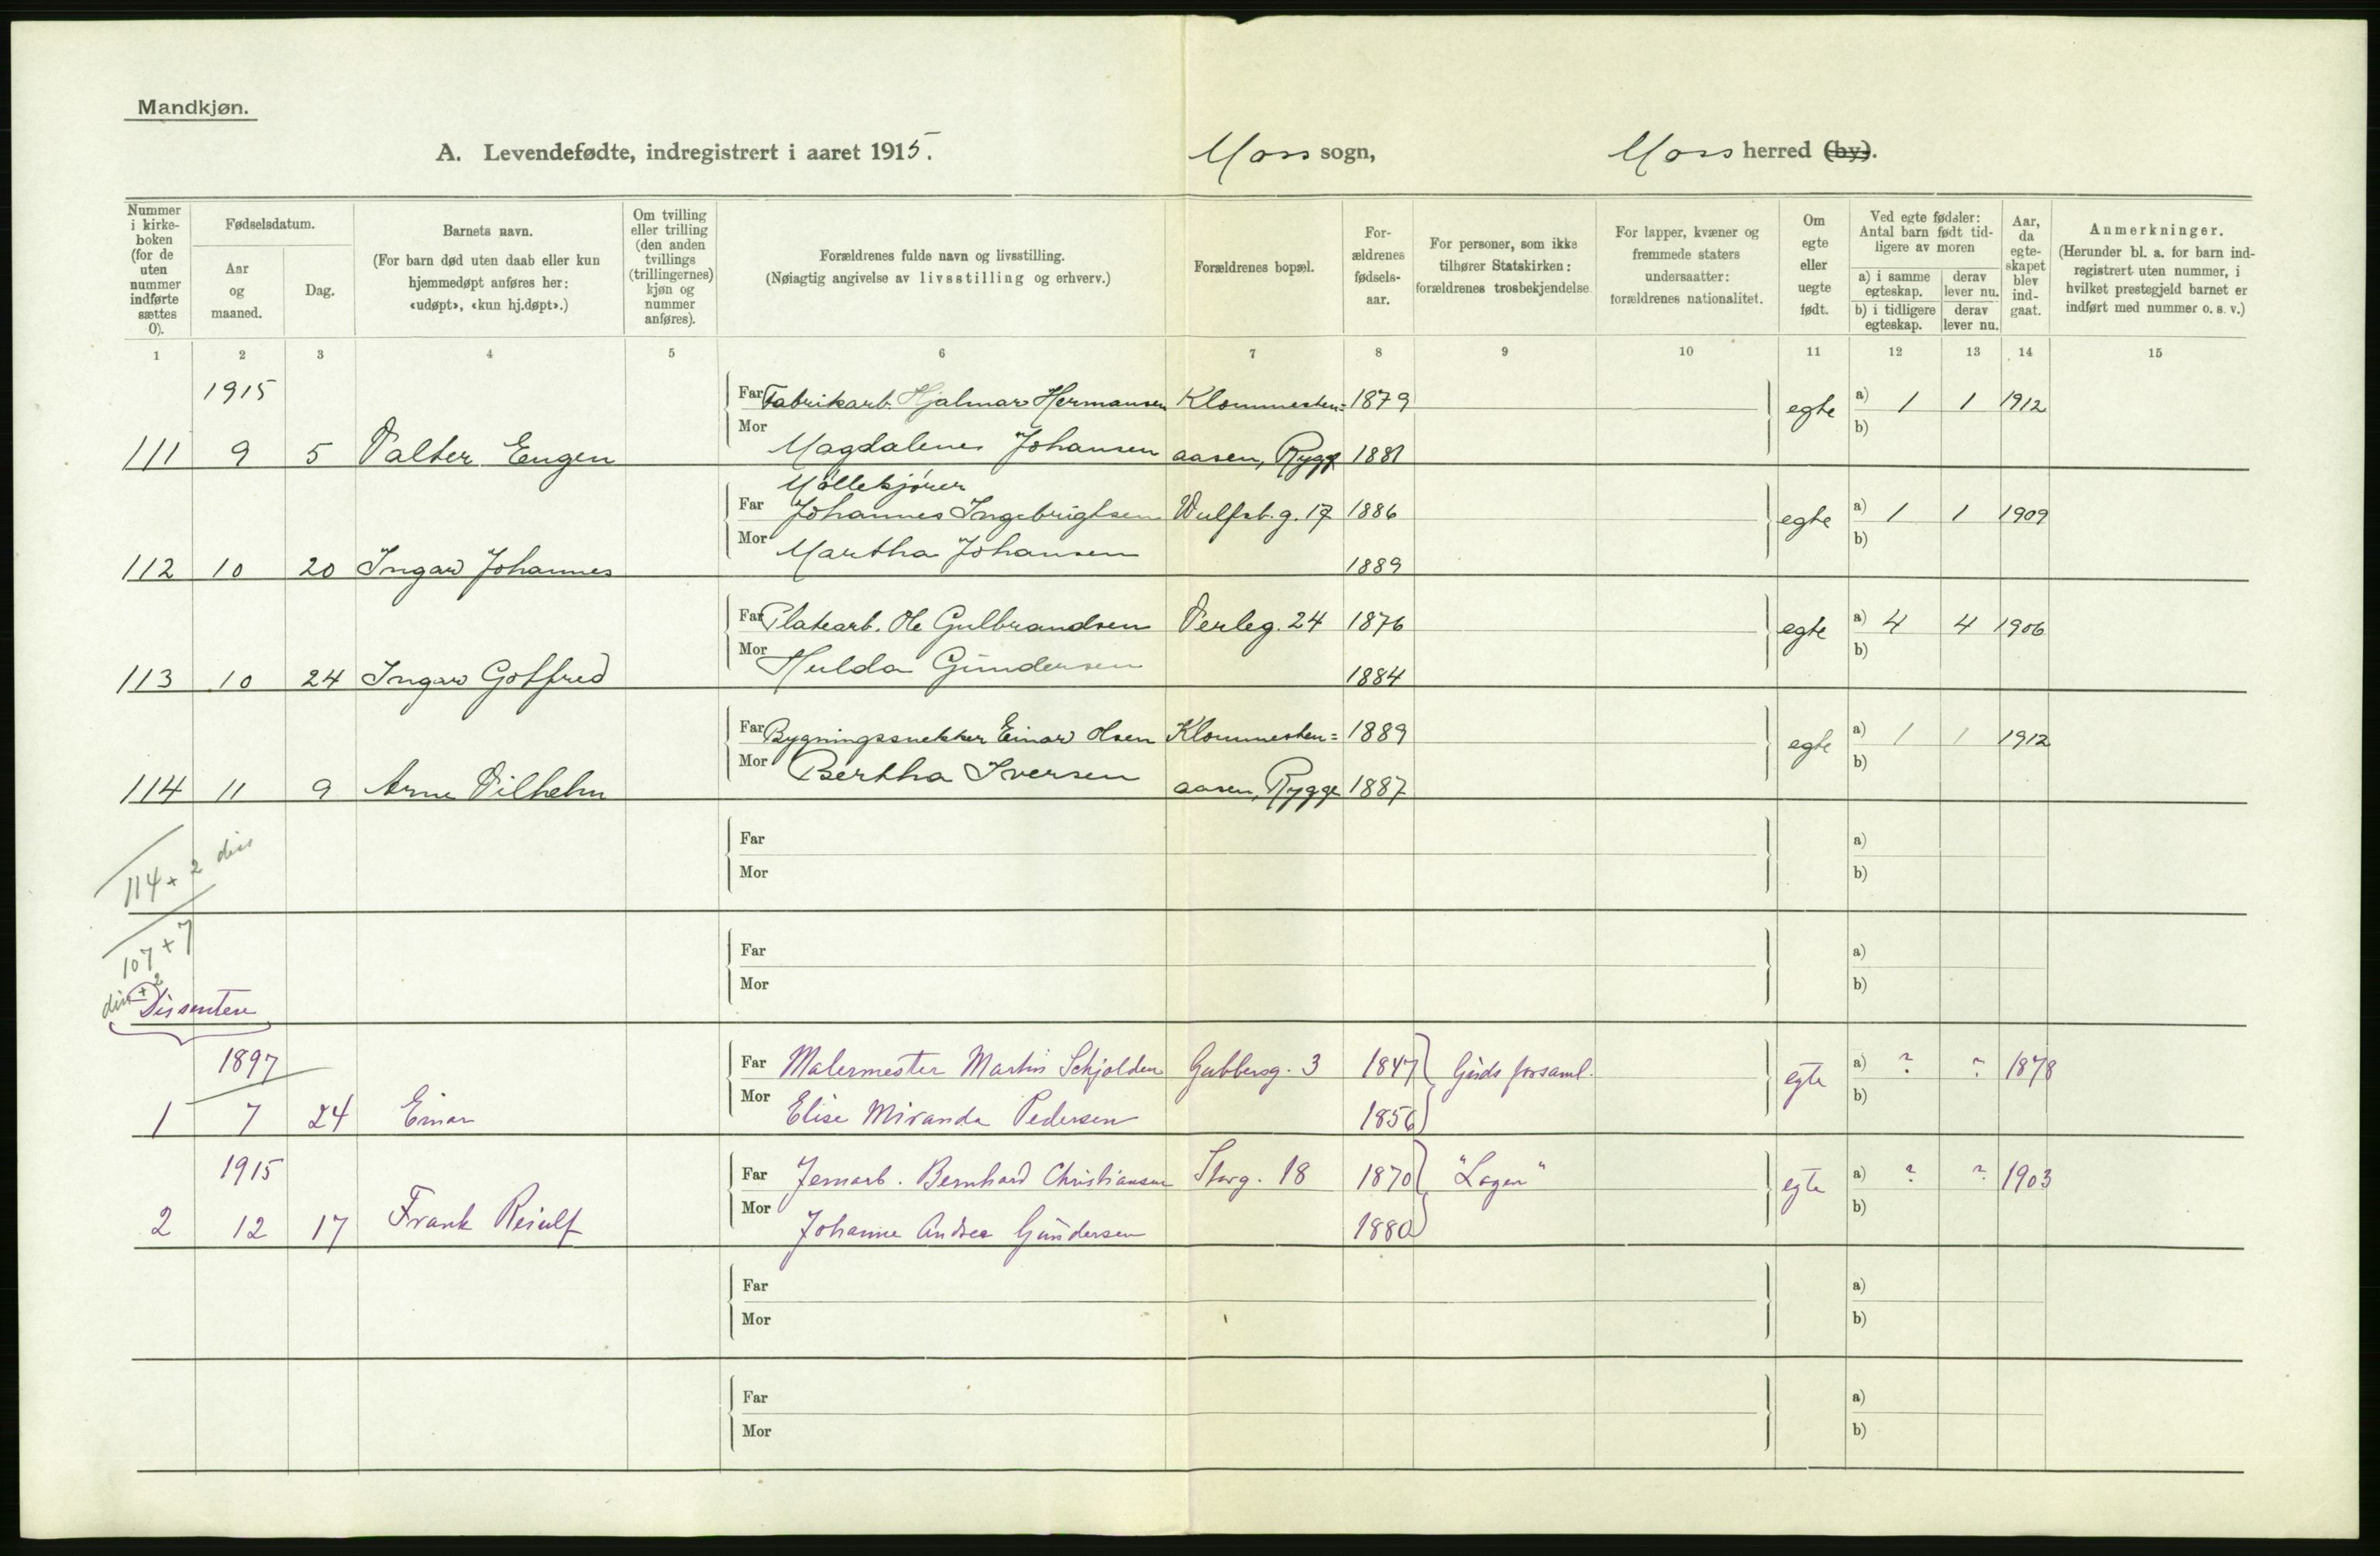 Mandkjøn.
A. Levendefødte, indregistrert i aaret 1915. Moss sogn, Moss herred (by).
Nummer i kirke-boken (for de uten nummer indførte sættes 0).
Fødselsdatum.
Aar og maaned.
Dag.
Barnets navn.
(For barn død uten daab eller kun hjemmedøpt anføres her: «udøpt», «kun hj.døpt».)
Om tvilling eller trilling (den anden tvillings (trillingernes) kjøn og nummer anføres).
Forældrenes fulde navn og livsstilling.
(Nøiagtig angivelse av livsstilling og erhverv.)
Forældrenes bopæl.
For-ældrenes fødsels-aar.
For personer, som ikke tilhører Statskirken: forældrenes trosbekjendelse.
For lapper, kvæner og fremmede staters undersaatter: forældrenes nationalitet.
Om egte eller uegte født.
Ved egte fødsler: Antal barn født tid-ligere av moren
a) i samme egteskap. derav lever nu.
b) i tidligere egteskap. derav lever nu.
Aar, da egte-skapet blev ind-gaat.
Anmerkninger.
(Herunder bl. a. for barn ind-registrert uten nummer, i hvilket prestegjeld barnet er indført med nummer o. s. v.)
1 2 3 4 5 6 7 8 9 10 11 12 13 14 15
1915 Far Fabrikarb. Hjalmar Hermansen Klommesten= 1879 egte a) 1 1 1912
111 9 5 Valter Eugen Mor Magdalene Johansen aasen, Rygge 1881 b)
Møllekjører
Far Johannes Ingebrigtsen Wulfsb.g. 17 1886 egte a) 1 1 1909
112 10 20 Ingar Johannes Mor Martha Johansen 1889 b)
Far Platearb. Ole Gulbrandsen Verleg. 24 1876 egte a) 4 4 1906
113 10 24 Ingar Gotfred Mor Hulda Gundersen 1884 b)
Far Bygningssnekker Einar Olsen Klommesten= 1889 egte a) 1 1 1912
114 11 9 Arne Vilhelm Mor Bertha Iversen aasen, Rygge 1887 b)
Far a)
114 + 2 diss
Mor b)
Far a)
107 + 7
Mor b)
diss + 2
Dissentere
1897 Far Malermester Martin Schjolden Gubbersg. 3 1847 Guds forsaml. egte a) ? ? 1878
1 7 24 Einar Mor Elise Miranda Pedersen 1856 b)
1915 Far Jernarb. Bernhard Christiansen Storg. 18 1870 "Logen" egte a) ? ? 1903
2 12 17 Frank Reiulf Mor Johanne Andrea Gundersen 1880 b)
Far a)
Mor b)
Far a)
Mor b)